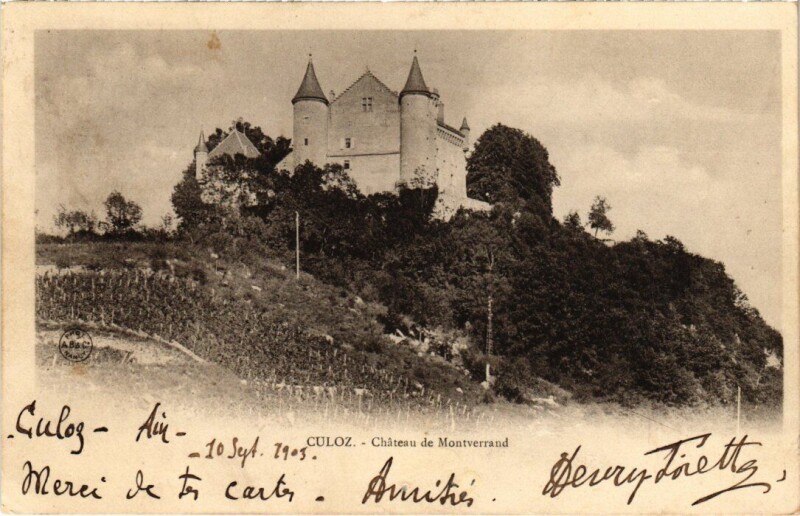 CULOZ. - Château de Montverrand
Culoz - Ain -
- 10 Sept. 1903.
Merci de tes cartes - Amitiés.